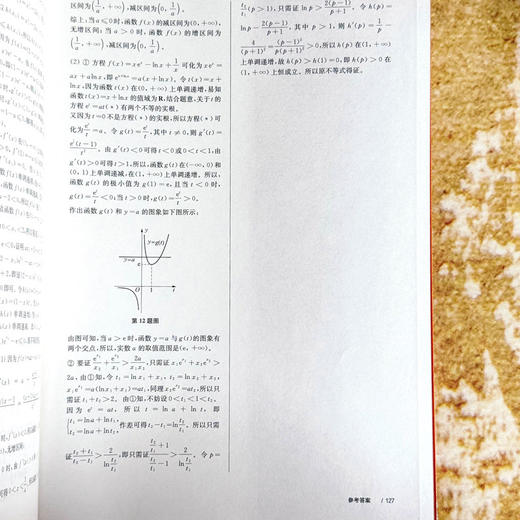 区间为(1/a, +∞),减区间为(0, 1/a).
综上:当a≤0时,函数f(x)的减区间为(0,+∞),
无增区间;当a>0时,函数f(x)的增区间为
(1/a, +∞),减区间为(0, 1/a).
(2) ① 方程f(x)=xe^x-lnx+1/x可化为xe^x=
ax+alnx,即e^(x+lnx)=a(x+lnx). 令t(x)=x+
lnx,因为函数t(x)在(0,+∞)上单调递增,易知
函数t(x)=x+lnx的值域为R,结合题意,关于t的
方程e^t=at(*)有两个不等的实根.
又因为t=0不是方程(*)的实根,所以方程(*)可
化为e^t/t=a. 令g(t)=e^t/t,其中t≠0,则g'(t)=
e^t(t-1)/t². 由g'(t)<0可得t<0或0<t<1,由
g'(t)>0可得t>1,所以,函数g(t)在(-∞,0)和
(0,1)上单调递减,在(1,+∞)上单调递增. 所以,
函数g(t)的极小值为g(1)=e,且当t<0时,
g(t)=e^t/t<0;当t>0时,g(t)=e^t/t>0.
作出函数g(t)和y=a的图象如下图所示:
y
y=g(t)
y=a
e
O
1
t
第12题图
由图可知,当a>e时,函数y=a与g(t)的图象有
两个交点,所以,实数a的取值范围是(e,+∞).
② 要证e^(x₁)/x₂+e^(x₂)/x₁>2a/(x₁x₂),只需证x₁e^(x₁)+x₂e^(x₂)>
2a. 由①知,令t₁=lnx₁+x₁,t₂=lnx₂+x₂,
x₁e^(x₁)=a(lnx₁+x₁)=at₁,同理x₂e^(x₂)=at₂,所以只
需证t₁+t₂>2. 由①知,不妨设0<t₁<1<t₂.
因为e^t=at,所以t=lna+lnt,即
{t₁=lna+lnt₁,
t₂=lna+lnt₂, 作差可得t₂-t₁=ln(t₂/t₁). 所以只需
证(t₂+t₁)/(t₂-t₁)>2/ln(t₂/t₁),即只需证(t₂/t₁+1)/(t₂/t₁-1)>2/ln(t₂/t₁). 令p=
t₂/t₁(p>1),只需证lnp>2(p-1)/(p+1). 令h(p)=
lnp-2(p-1)/(p+1),其中p>1,则h'(p)=1/p-
4/(p+1)²=(p-1)²/(p(p+1)²)>0,所以h(p)在(1,+∞)
上单调递增,故h(p)>h(1)=0,即h(p)>0在
(1,+∞)上恒成立. 所以原不等式得证.
参考答案 / 127